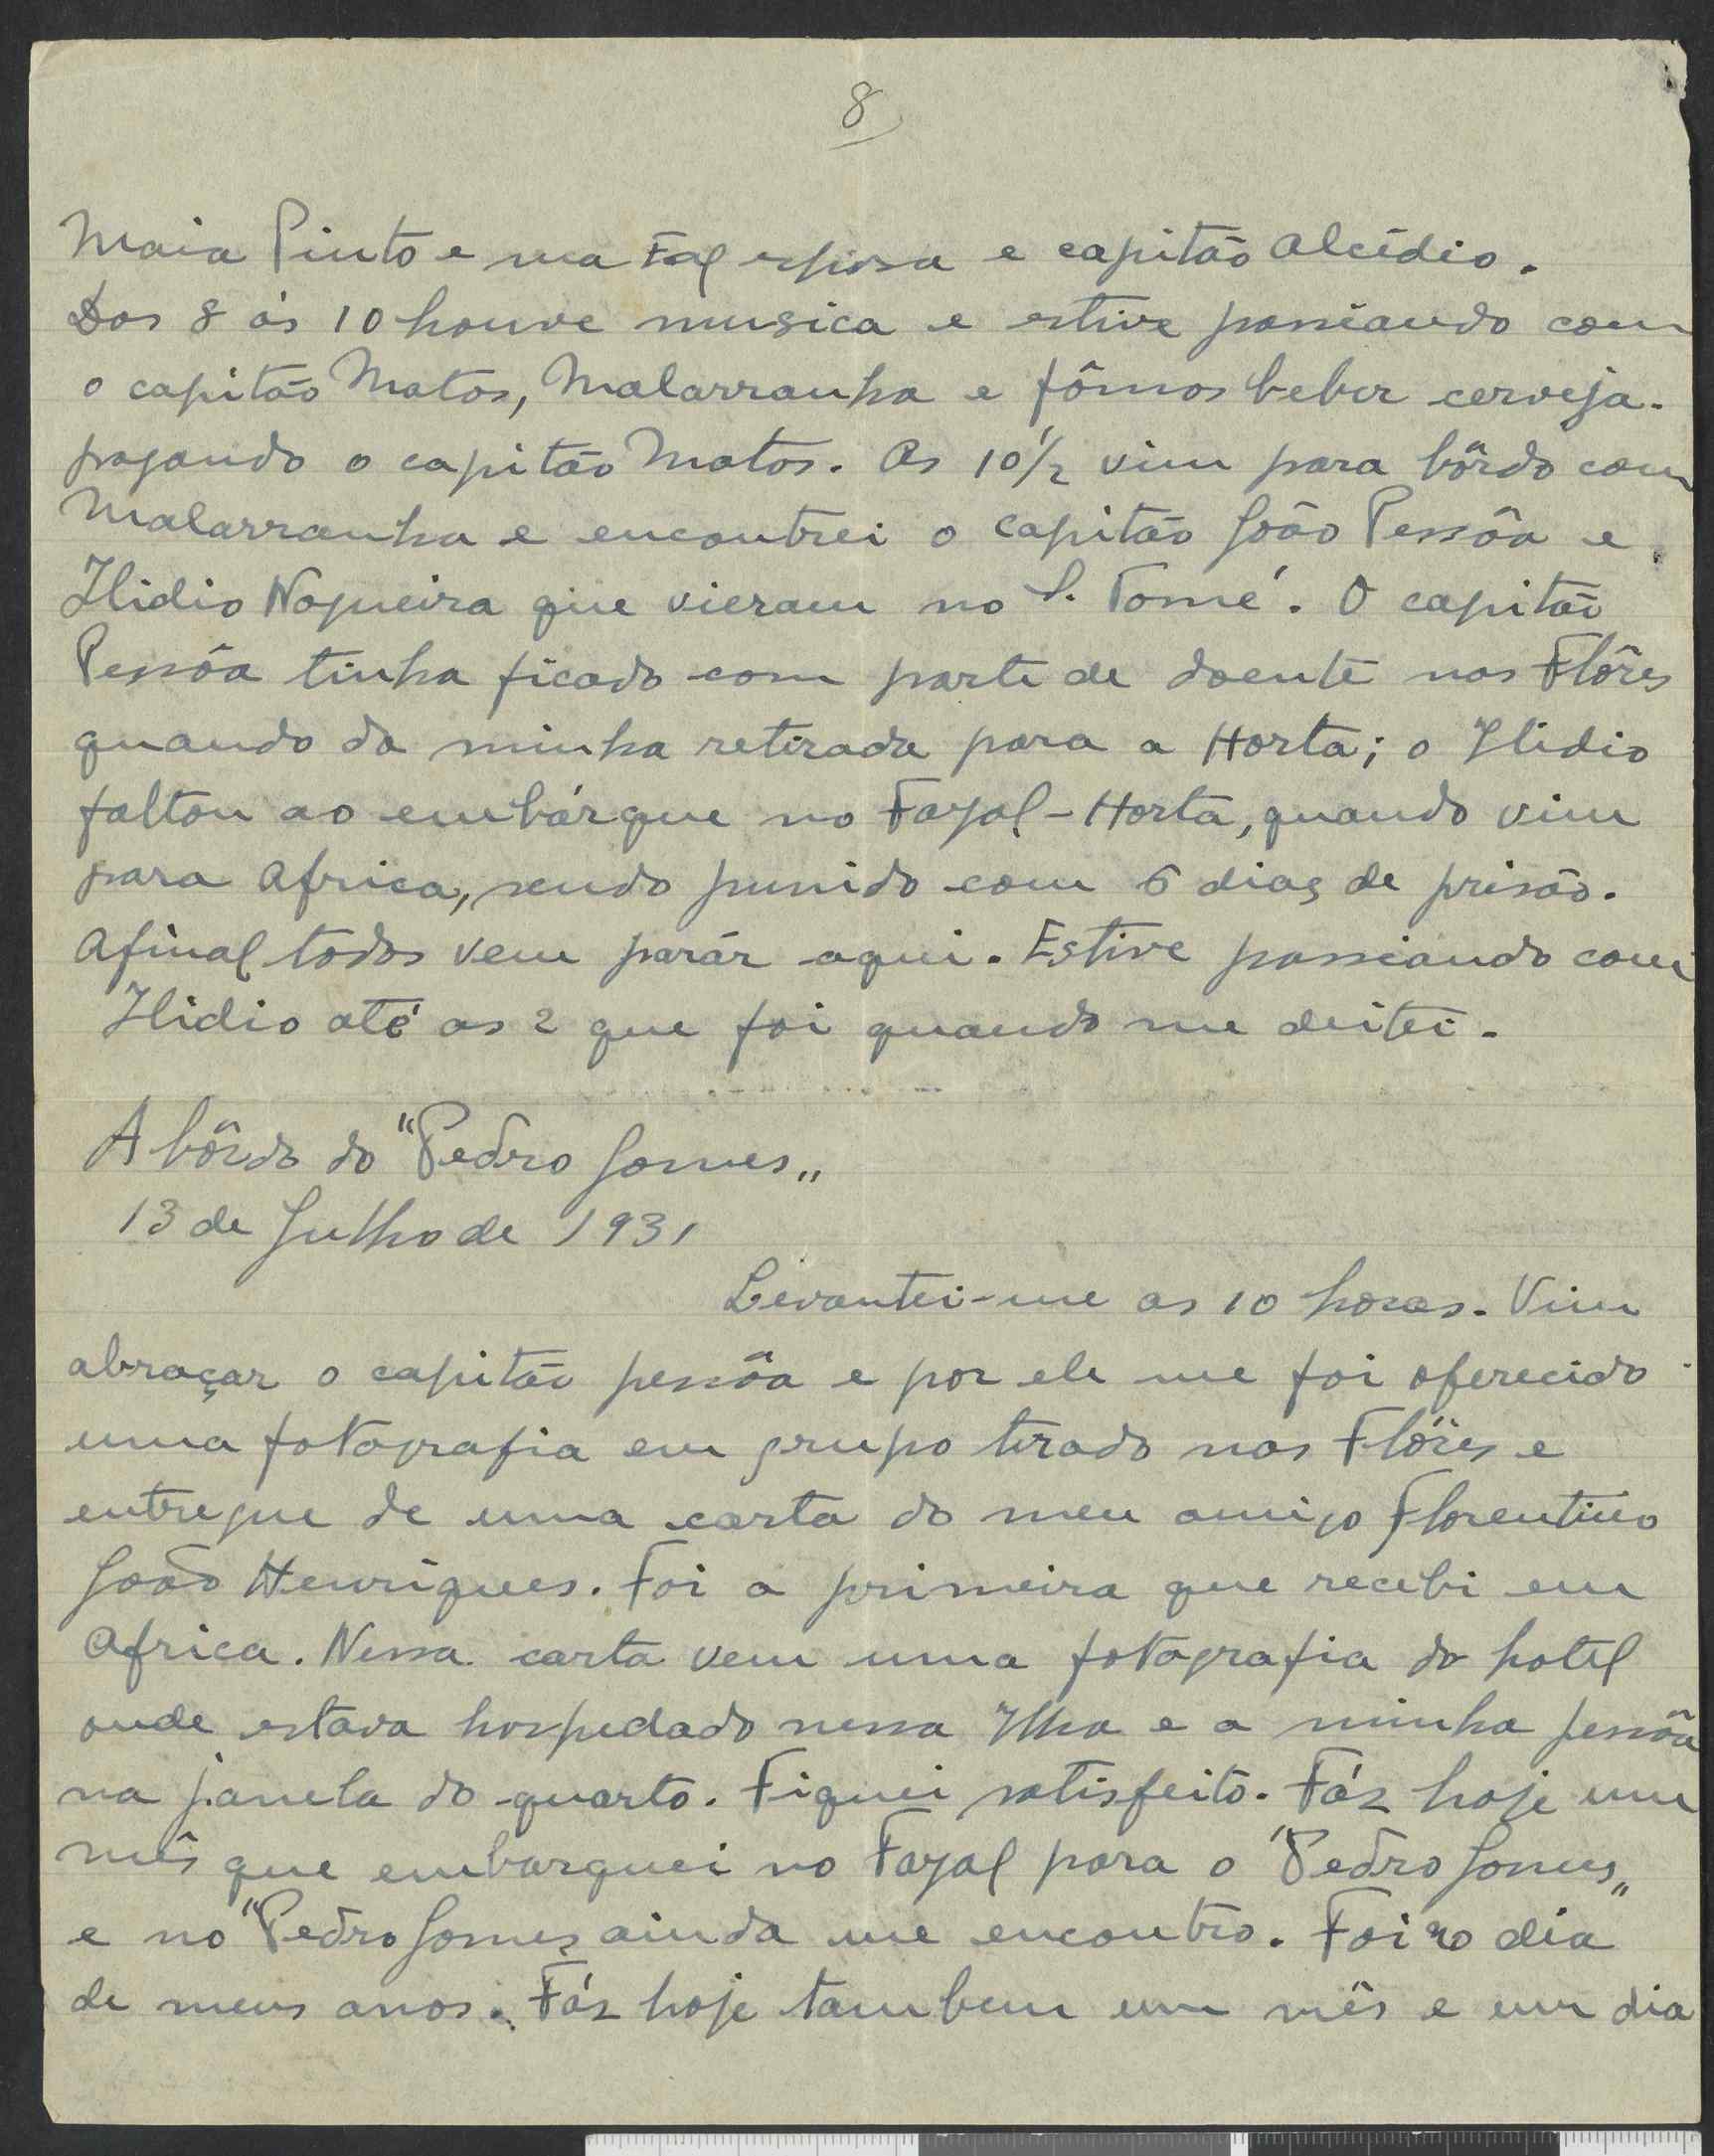 8
Maia Pinto e sua esposa e capitão Alcídio.
Das 8 ás 10 houve musica e estive passeando com
o capitão Matos, Malarranha e fômos beber cerveja.
pagando o capitão Matos. As 10½ vim para bôrdo com
Malarranha e encontrei o capitão João Pessôa e
Ilidio Nogueira que vieram no S. Tomé. O capitão
Pessôa tinha ficado com parte de doente nas Flôres
quando da minha retirada para a Horta; o Ilidio
faltou ao embárque no Fayal-Horta, quando vim
para Africa, sendo punido com 6 dias de prisão.
Afinal todos vem parár aqui. Estive passeando com
Ilidio até as 2 que foi quando me deitei.
A bôrdo do "Pedro Gomes"
13 de Julho de 1931
Levantei-me as 10 horas. Vim
abraçar o capitão pessôa e por ele me foi oferecido
uma fotografia em grupo tirado nas Flôres e
entregue de uma carta do meu amigo Florentino
João Henriques. Foi a primeira que recebi em
Africa. Nessa carta vem uma fotografia do hotel
onde estava hospedado nessa Ilha e a minha pessôa
na janela do quarto. Fiquei satisfeito. Fáz hoje um
mês que embarquei no Fayal para o "Pedro Gomes"
e no "Pedro Gomes ainda me encontro. Foi no dia
de meus anos. Fáz hoje tambem um mês e um dia